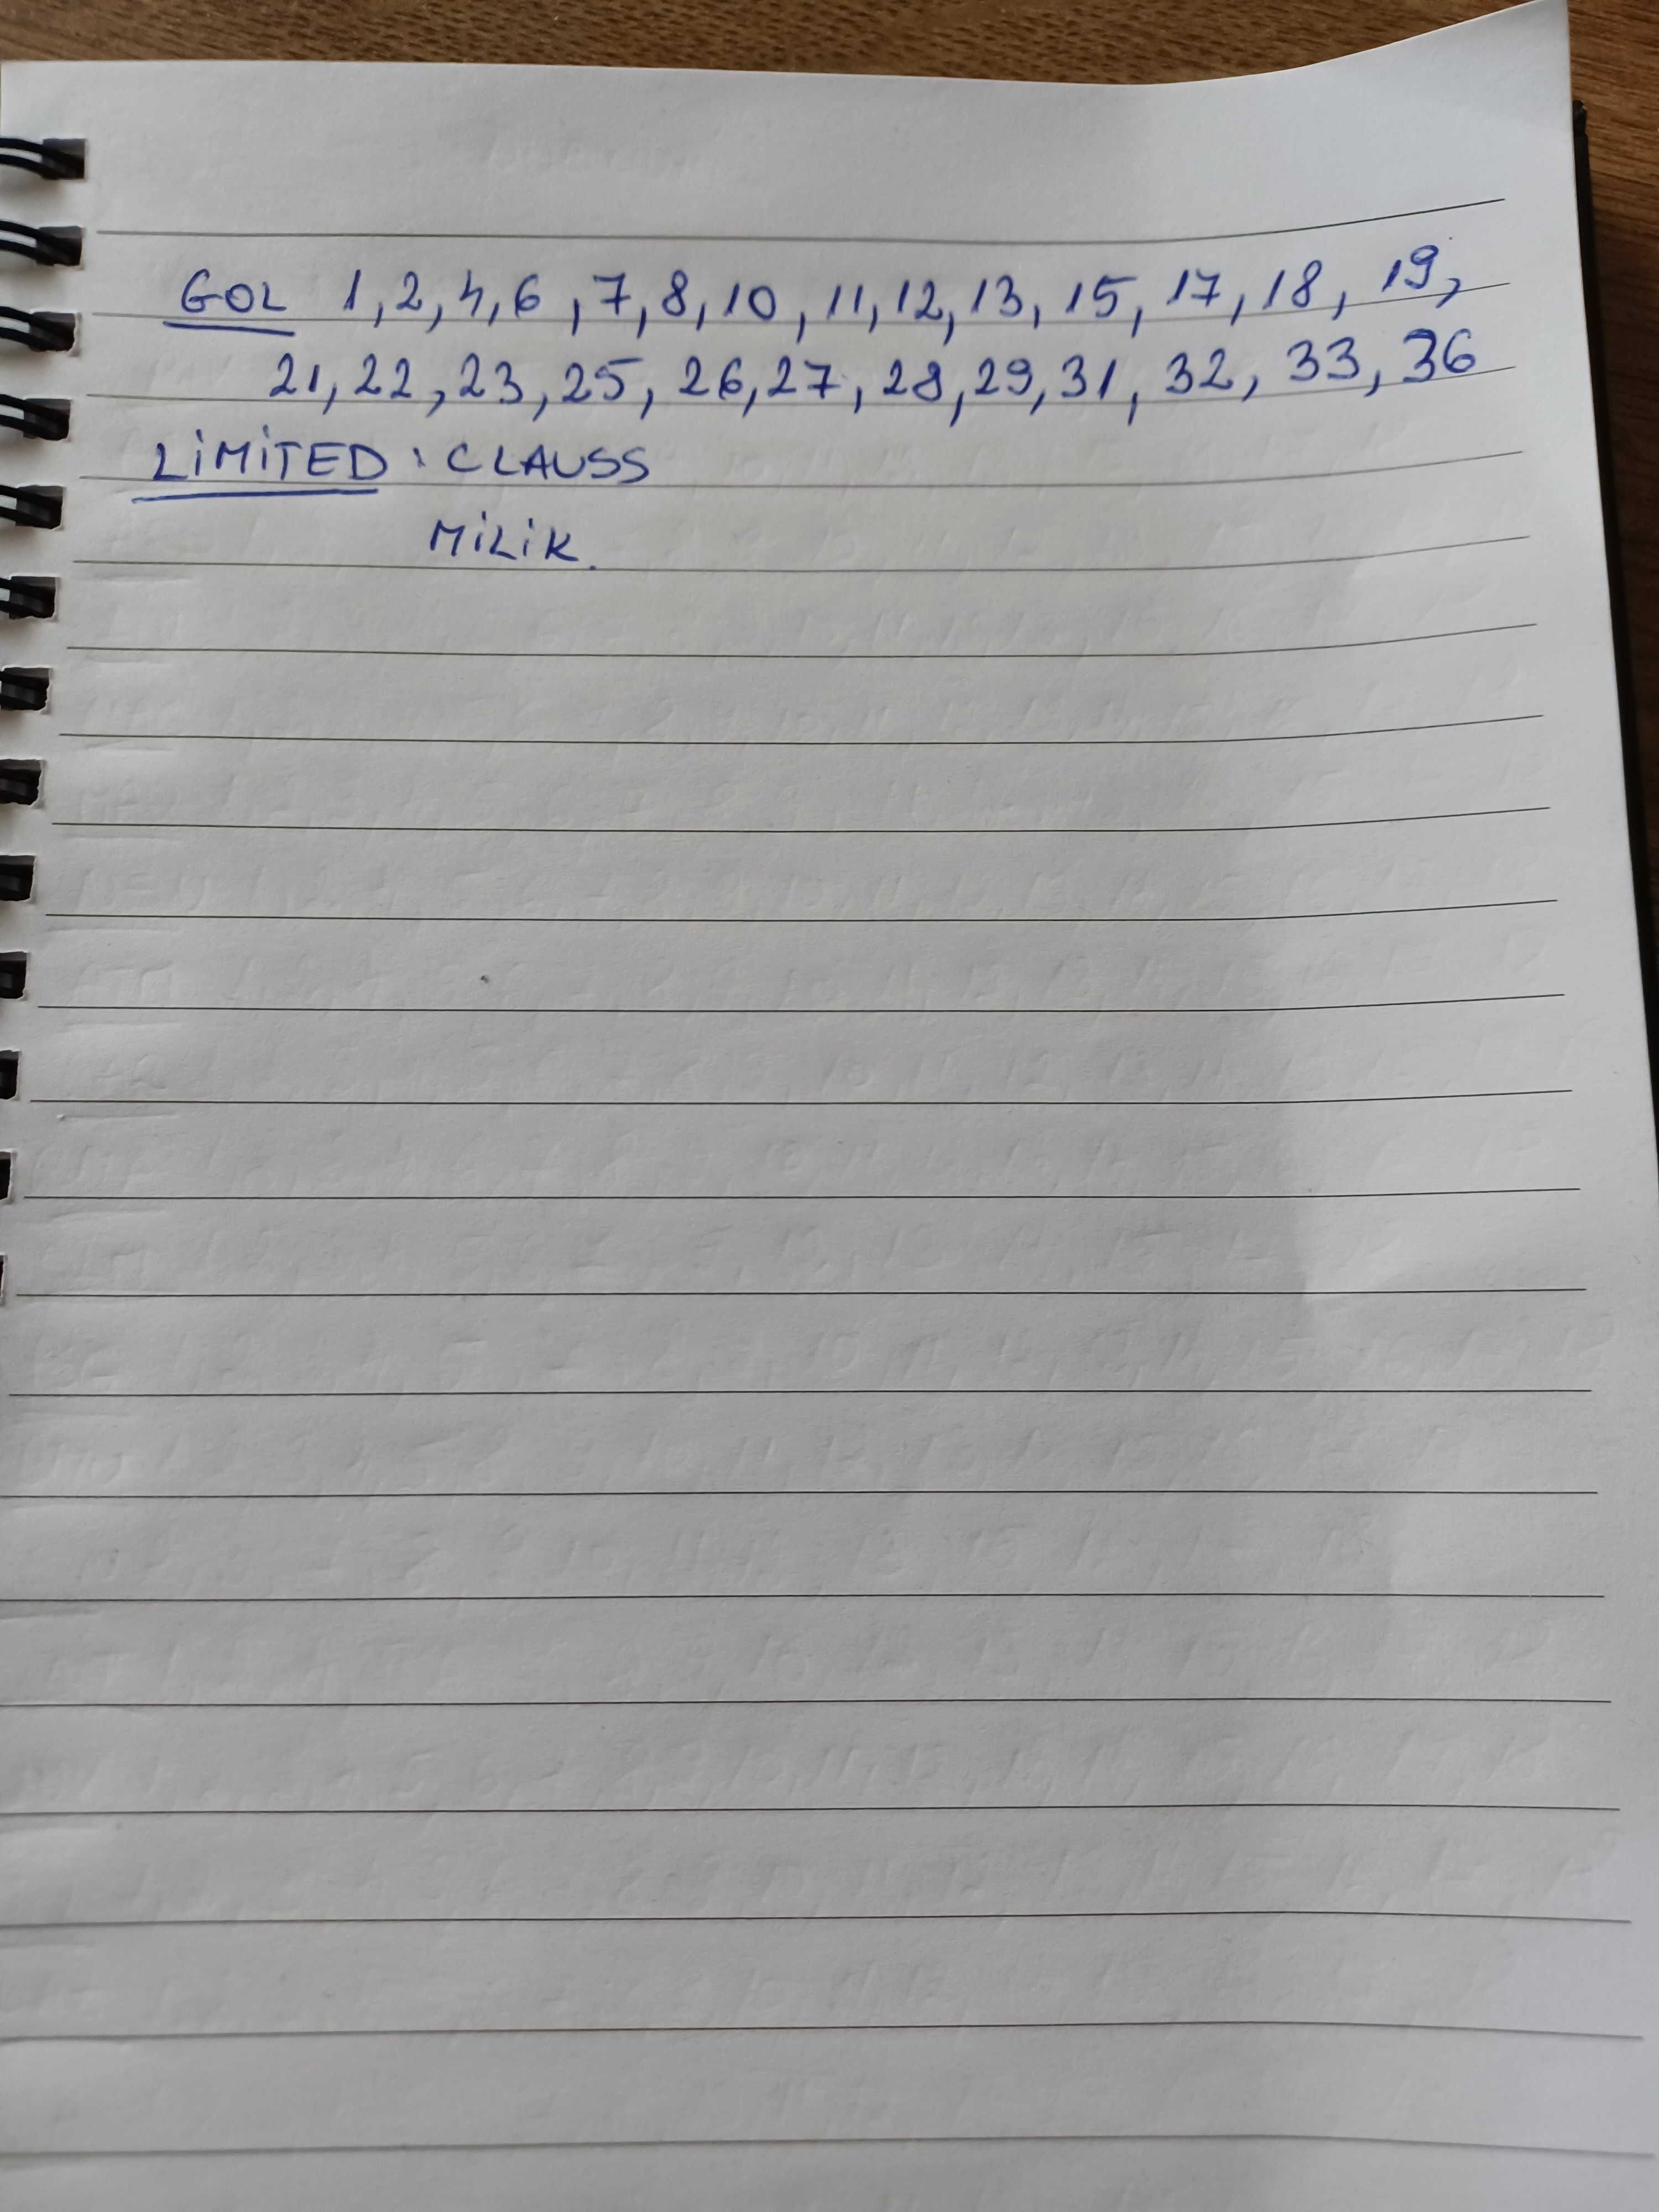 GOL 1, 2, 4, 6, 7, 8, 10, 11, 12, 13, 15, 17, 18, 19,
21, 22, 23, 25, 26, 27, 28, 29, 31, 32, 33, 36
LiMiTED: CLAUSS
MiLiK.